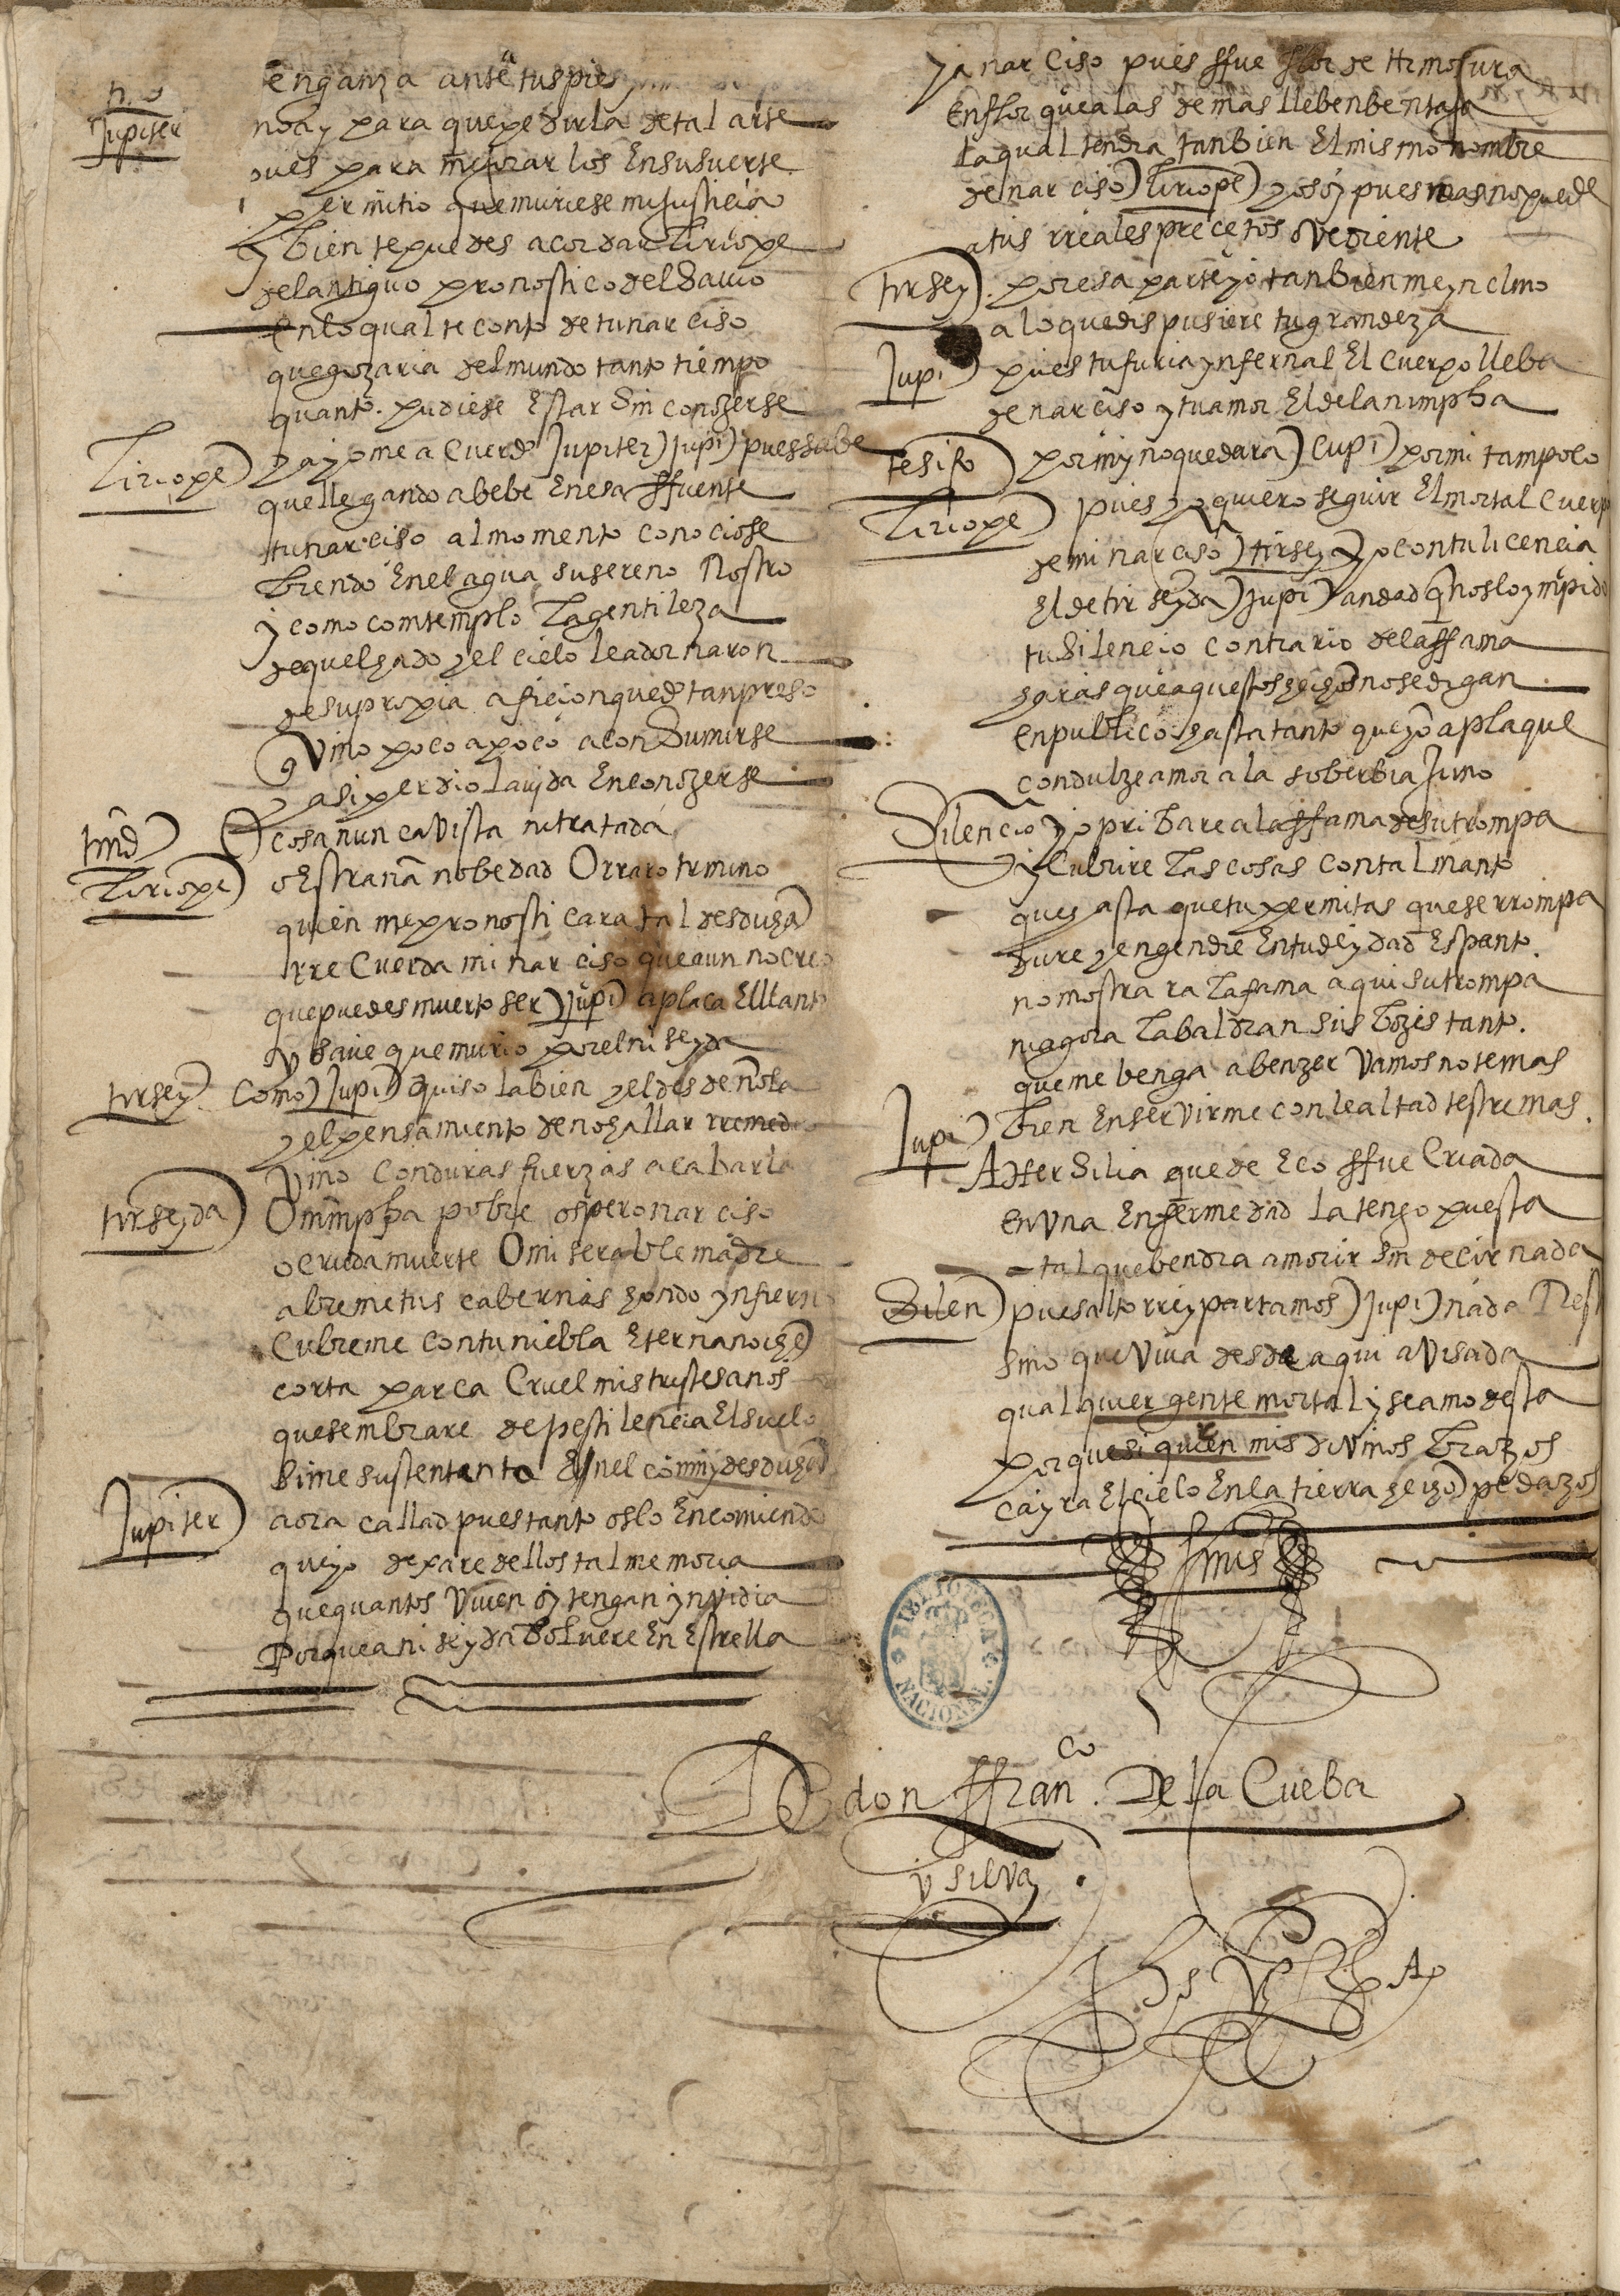 enganza ante tus pies
Jupiter
no ay para que pedirla de tal arte
pues para mejorar los En su suerte
permitio que muriese mi justicia
y bien te puedes acordar Liriope
del antiguo pronostico del Savio
en lo qual te conto de tu narciso
que gozaria del mundo tanto tiempo
quanto pudiese Estar Sin conozerse
Liriope) ya yo me acuerdo Jupiter) Jupi) pues sabe
que llegando a beber En esa ffuente
tu narciso al momento conociose
biendo En el agua su sereno Rostro
y como comtemplo La gentileza
de quel hado y el cielo le adornaron
de su propia aficion quedo tan preso
q Vino poco a poco a conSumirse
y asi perdio La vida En conozerse
tirid) O cosa nunca Vista ni tratada
Liriope) o Estraña nobedad O rraro termino
quien me pronosticara tal desdicha
rrecuerda mi narciso que aun no creo
que puedes muerto ser) Jupi) aplaca El llanto
y Save que murio por el niseyda
tirsey) Como) Jupi) quiso la bien y el desdeñola
y el pensamiento de no hallar rremedio
Vino Con duras fuerzas a cabarla
tirseyda) O nimpha pobre o spero narciso
o cruda muerte O miserable madre
abreme tus cabernas hondo ynfierno
Cubreme con tu niebla Eterna noche
corta parca Cruel mis tristes años
que sembrare de pestilencia El suelo
Si me sustento En el con my desdicha
Jupiter) aora callad pues tanto os lo Encomiendo
que yo dexare dellos tal memoria
que quantos Viven oy tengan ynvidia
Porque a niseyda Bolvere En Estrella
y a narciso pues ffue flor de Hermosura
En flor que a las demas lleben bentaja
La qual tendra tanbien El mismo nombre
de narciso) Liriope) yo soy pues mas no puede
a tus rreales precetos oVediente
tirsey) por esa parte yo tanbien me ynclino
a lo que dispusiere tu grandeza
Jupi) pues tu furia ynfernal El cuerpo lleba
de narciso y tu amor El de la nimpha
tesifo) por my no quedara) Cupi) por mi tampoco
Liriope) pues yo quiero seguir El mortal Cuerpo
de mi narciso) tirsey) yo con tu licencia
El de tirseyda) Jupi) andad q nos lo ympido
tu Silencio contrario de la ffama
haras que aquestos hechos no se digan
en publico hasta tanto que yo aplaque
con dulze amor a la soberbia Juno
Silencio) yo pribare a la ffama de su trompa
y Cubrire Las cosas con tal manto
que hasta que tu permitas que se rrompa
dure y engendre En tu deydad Espanto
no mostrara La fama aqui su trompa
ni agora La baldran sus bozes tanto
que me benga a benzer Vamos no temas
Jupi) bien En servirme con lealtad testremas
A Hersilia que de Eco ffue Criada
en Vna Enfermedad la tengo puesta
tal que bendra a morir sin decir nada
Silen) pues alto rrey partamos) Jupi) nada Rest
sino que Viva desde aqui aVisada
qualquier gente mortal y sea modesta
porque si quien mis diVinos brazos
cayra El cielo En la tierra hecho pedazos
ffinis
D don ffranco. De la Cueba
y silva